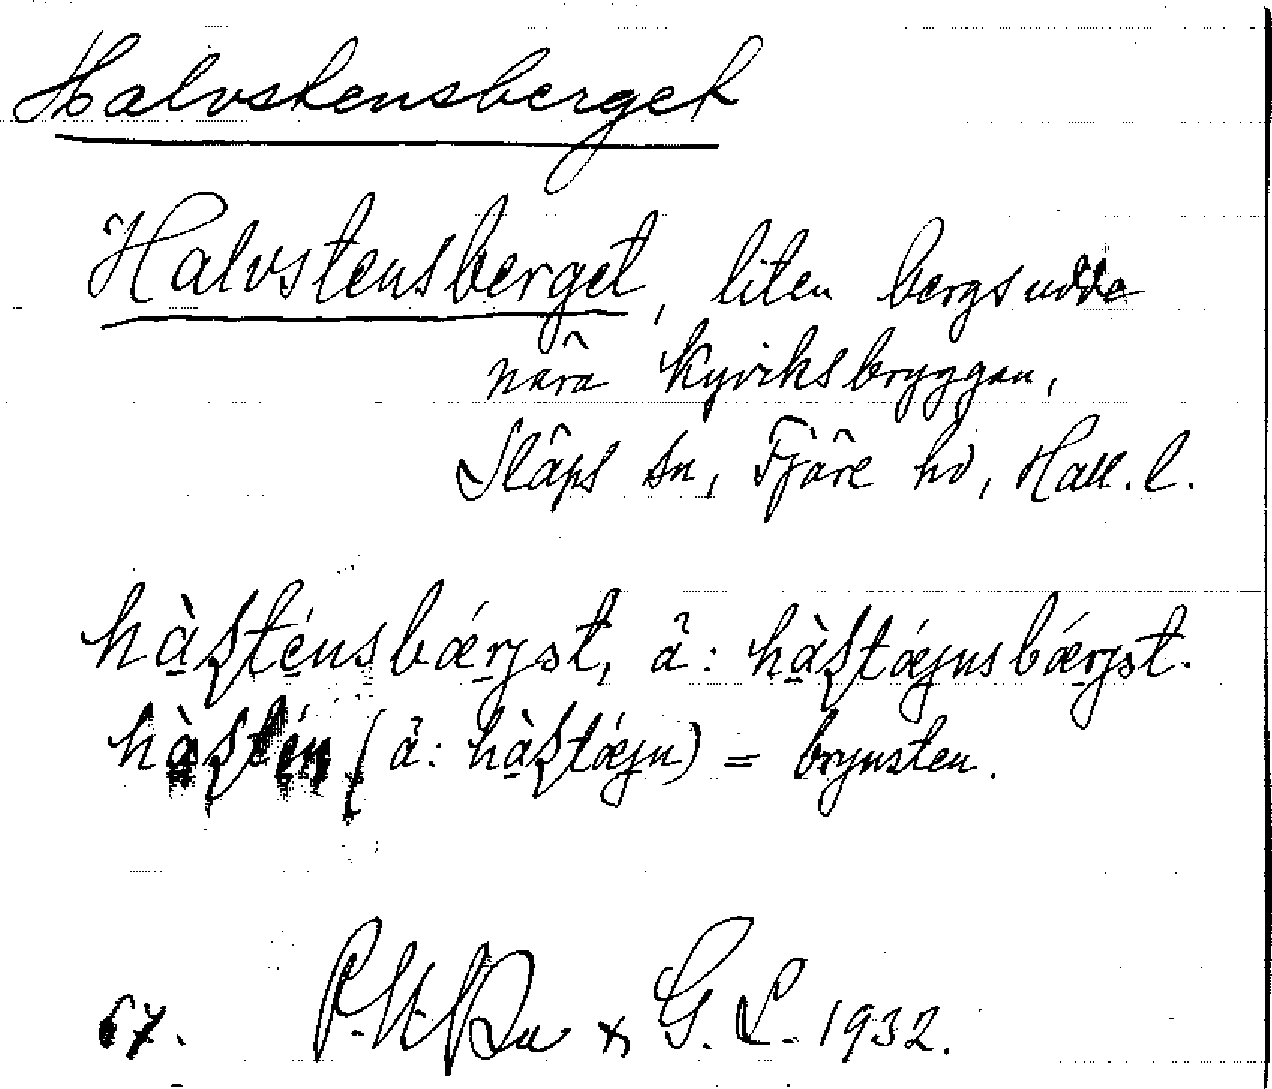 Halvstensberget
Halvstensberget, liten bergsudde
nära Kyviksbryggan,
Släps sn, Fjäre hd, Hall. l.
hàʃténsbǽrjət, ä: hàʃtǽjnsbǽrjət.
hàʃtén (ä: hàʃtǽjn) = brynsten.
67. G. L. 1932.